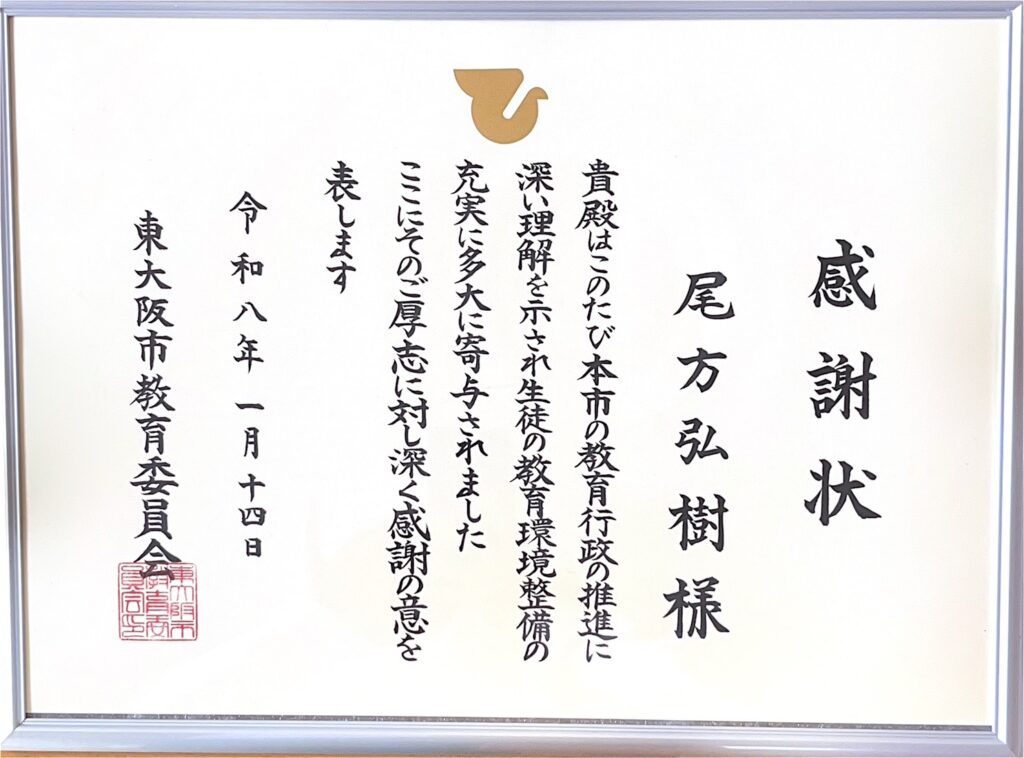 感謝状
尾方弘樹様
貴殿はこのたび本市の教育行政の推進に
深い理解を示され生徒の教育環境整備の
充実に多大に寄与されました
ここにそのご厚志に対し深く感謝の意を
表します
令和八年一月十四日
東大阪市教育委員会
東大阪市
教育委
員会印